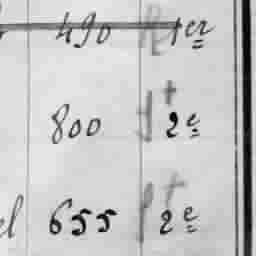 490 1er
800 2e
655 2e